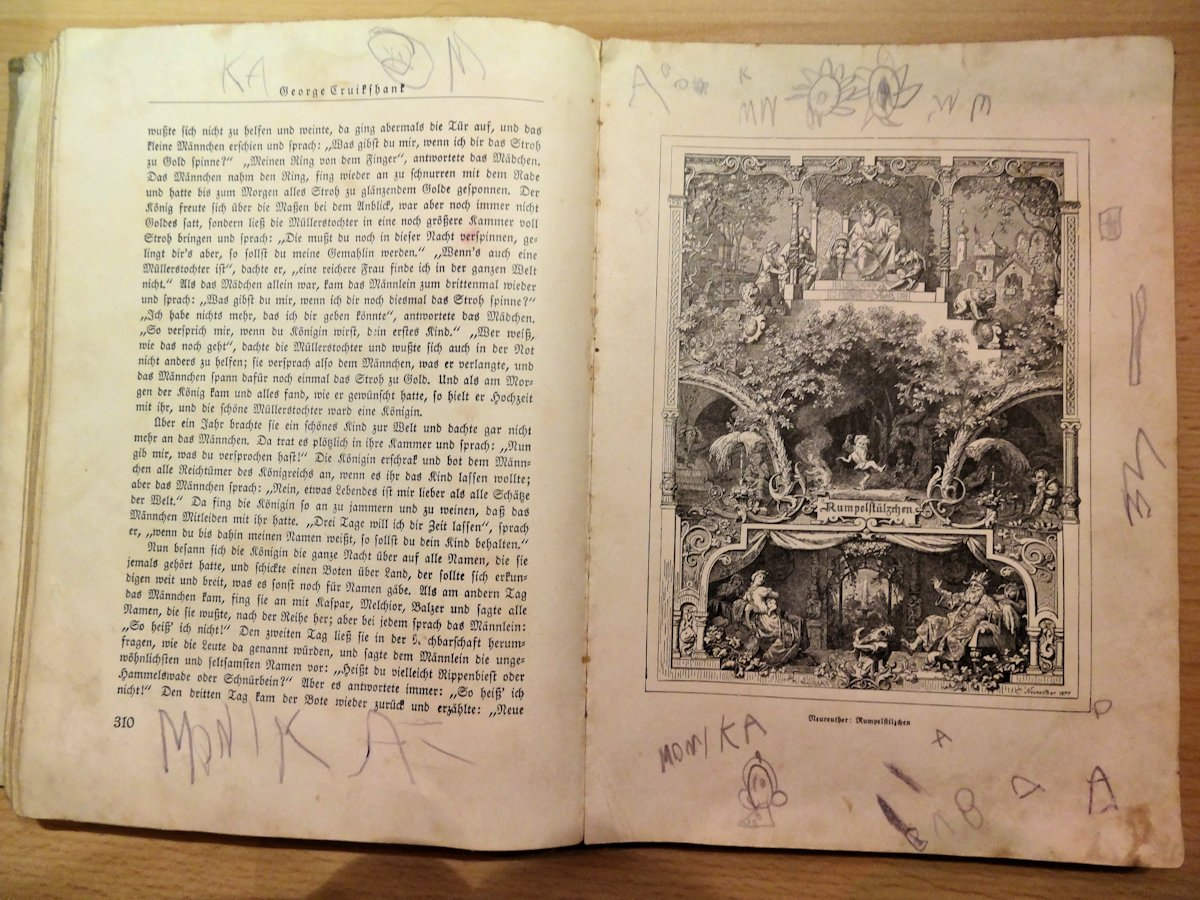 KA M
George Cruikshank
wußte sich nicht zu helfen und weinte, da ging abermals die Tür auf, und das
kleine Männchen erschien und sprach: „Was gibst du mir, wenn ich dir das Stroh
zu Gold spinne?“ „Meinen Ring von dem Finger“, antwortete das Mädchen.
Das Männchen nahm den Ring, fing wieder an zu schnurren mit dem Rade
und hatte bis zum Morgen alles Stroh zu glänzendem Golde gesponnen. Der
König freute sich über die Maßen bei dem Anblick, war aber noch immer nicht
Goldes satt, sondern ließ die Müllerstochter in eine noch größere Kammer voll
Stroh bringen und sprach: „Die mußt du noch in dieser Nacht verspinnen, ge-
lingt dir's aber, so sollst du meine Gemahlin werden.“ „Wenn's auch eine
Müllerstochter ist“, dachte er, „eine reichere Frau finde ich in der ganzen Welt
nicht.“ Als das Mädchen allein war, kam das Männlein zum drittenmal wieder
und sprach: „Was gibst du mir, wenn ich dir noch diesmal das Stroh spinne?“
„Ich habe nichts mehr, das ich dir geben könnte“, antwortete das Mädchen.
„So versprich mir, wenn du Königin wirst, dein erstes Kind.“ „Wer weiß,
wie das noch geht“, dachte die Müllerstochter und wußte sich auch in der Not
nicht anders zu helfen; sie versprach also dem Männchen, was er verlangte, und
das Männchen spann dafür noch einmal das Stroh zu Gold. Und als am Mor-
gen der König kam und alles fand, wie er gewünscht hatte, so hielt er Hochzeit
mit ihr, und die schöne Müllerstochter ward eine Königin.
Über ein Jahr brachte sie ein schönes Kind zur Welt und dachte gar nicht
mehr an das Männchen. Da trat es plötzlich in ihre Kammer und sprach: „Nun
gib mir, was du versprochen hast!“ Die Königin erschrak und bot dem Männ-
chen alle Reichtümer des Königreichs an, wenn es ihr das Kind lassen wollte;
aber das Männchen sprach: „Nein, etwas Lebendes ist mir lieber als alle Schätze
der Welt.“ Da fing die Königin so an zu jammern und zu weinen, daß das
Männchen Mitleiden mit ihr hatte. „Drei Tage will ich dir Zeit lassen“, sprach
er, „wenn du bis dahin meinen Namen weißt, so sollst du dein Kind behalten.“
Nun besann sich die Königin die ganze Nacht über auf alle Namen, die sie
jemals gehört hatte, und schickte einen Boten über Land, der sollte sich erkun-
digen weit und breit, was es sonst noch für Namen gäbe. Als am andern Tag
das Männchen kam, fing sie an mit Kaspar, Melchior, Balzer und sagte alle
Namen, die sie wußte, nach der Reihe her; aber bei jedem sprach das Männlein:
„So heiß' ich nicht!“ Den zweiten Tag ließ sie in der Nachbarschaft herum-
fragen, wie die Leute da genannt würden, und sagte dem Männlein die unge-
wöhnlichsten und seltsamsten Namen vor: „Heißt du vielleicht Rippenbiest oder
Hammelswade oder Schnürbein?“ Aber es antwortete immer: „So heiß' ich
nicht!“ Den dritten Tag kam der Bote wieder zurück und erzählte: „Neue
310
MONIKA
A
Rumpelstülzchen
Neureuther: Rumpelstilzchen
MONIKA
A
A